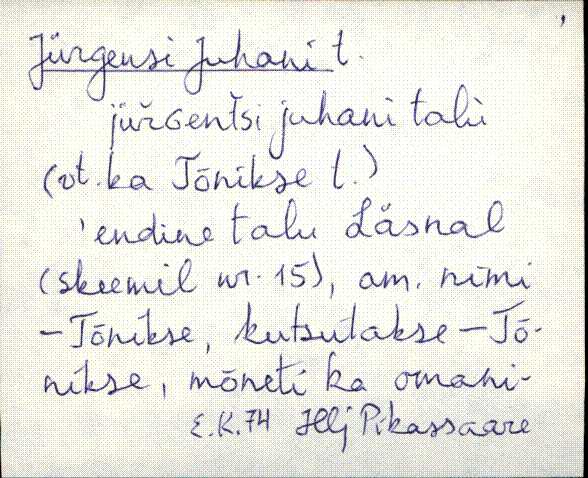 Jürgensi Juhani t.
jürGentši juhani talu
(vt. ka Tõnikse t.)
'endine talu Läsnal
(skeemil nr. 15), am. nimi
– Tõnikse, kutsutakse – Tõ-
nikse, mõneti ka omani-
E.K. 74 Pikassaare